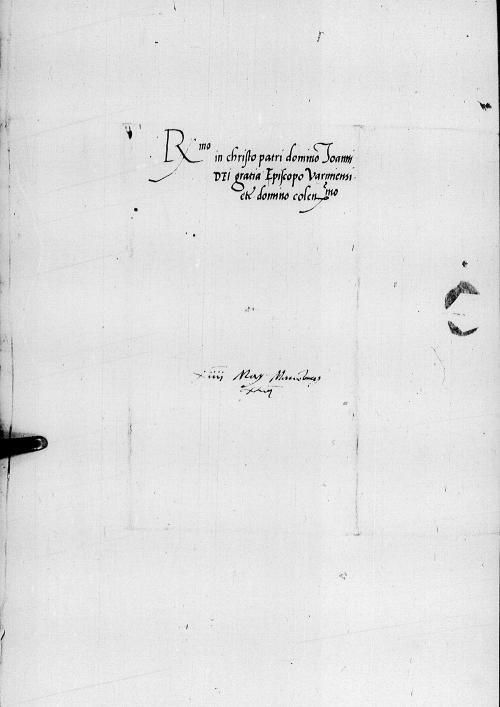 Rmo in christo patri domino Joanni
DEI gratia Episcopo Varmiensi
etc domino colenmo
xiiii May